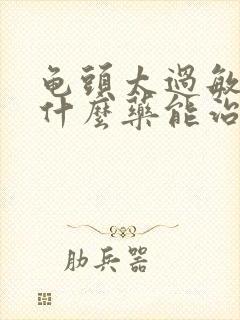 龟頭太過敏
什麼藥能治
肋兵器